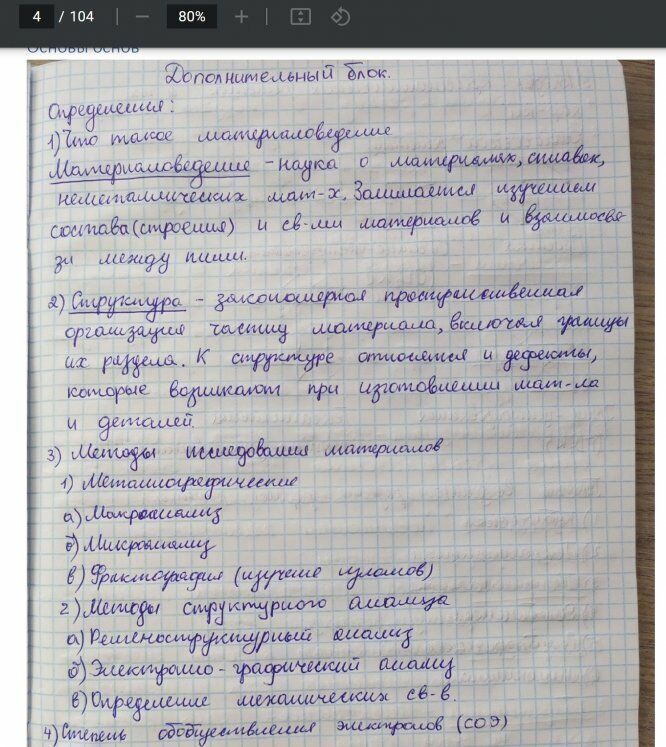 4 / 104
80%
Основы основ
Дополнительный блок.
Определения:
1) Что такое материаловедение
Материаловедение - наука о материалах, сплавах,
неметаллических мат-х. Занимается изучением
состава (строения) и св-ми материалов и взаимосвя-
зи между ними.
2) Структура - закономерная пространственная
организация частиц материала, включая границы
их раздела. К структуре относятся и дефекты,
которые возникают при изготовлении мат-ла
и деталей.
3) Методы исследования материалов
1) Металлографические
а) Макроанализ
б) Микроанализ
в) Фрактография (изучение изломов)
2) Методы структурного анализа
а) Ренгеноструктурный анализ
б) Электроно-графический анализ
в) Определение механических св-в.
4) Степень обобществления электронов (СОЭ)